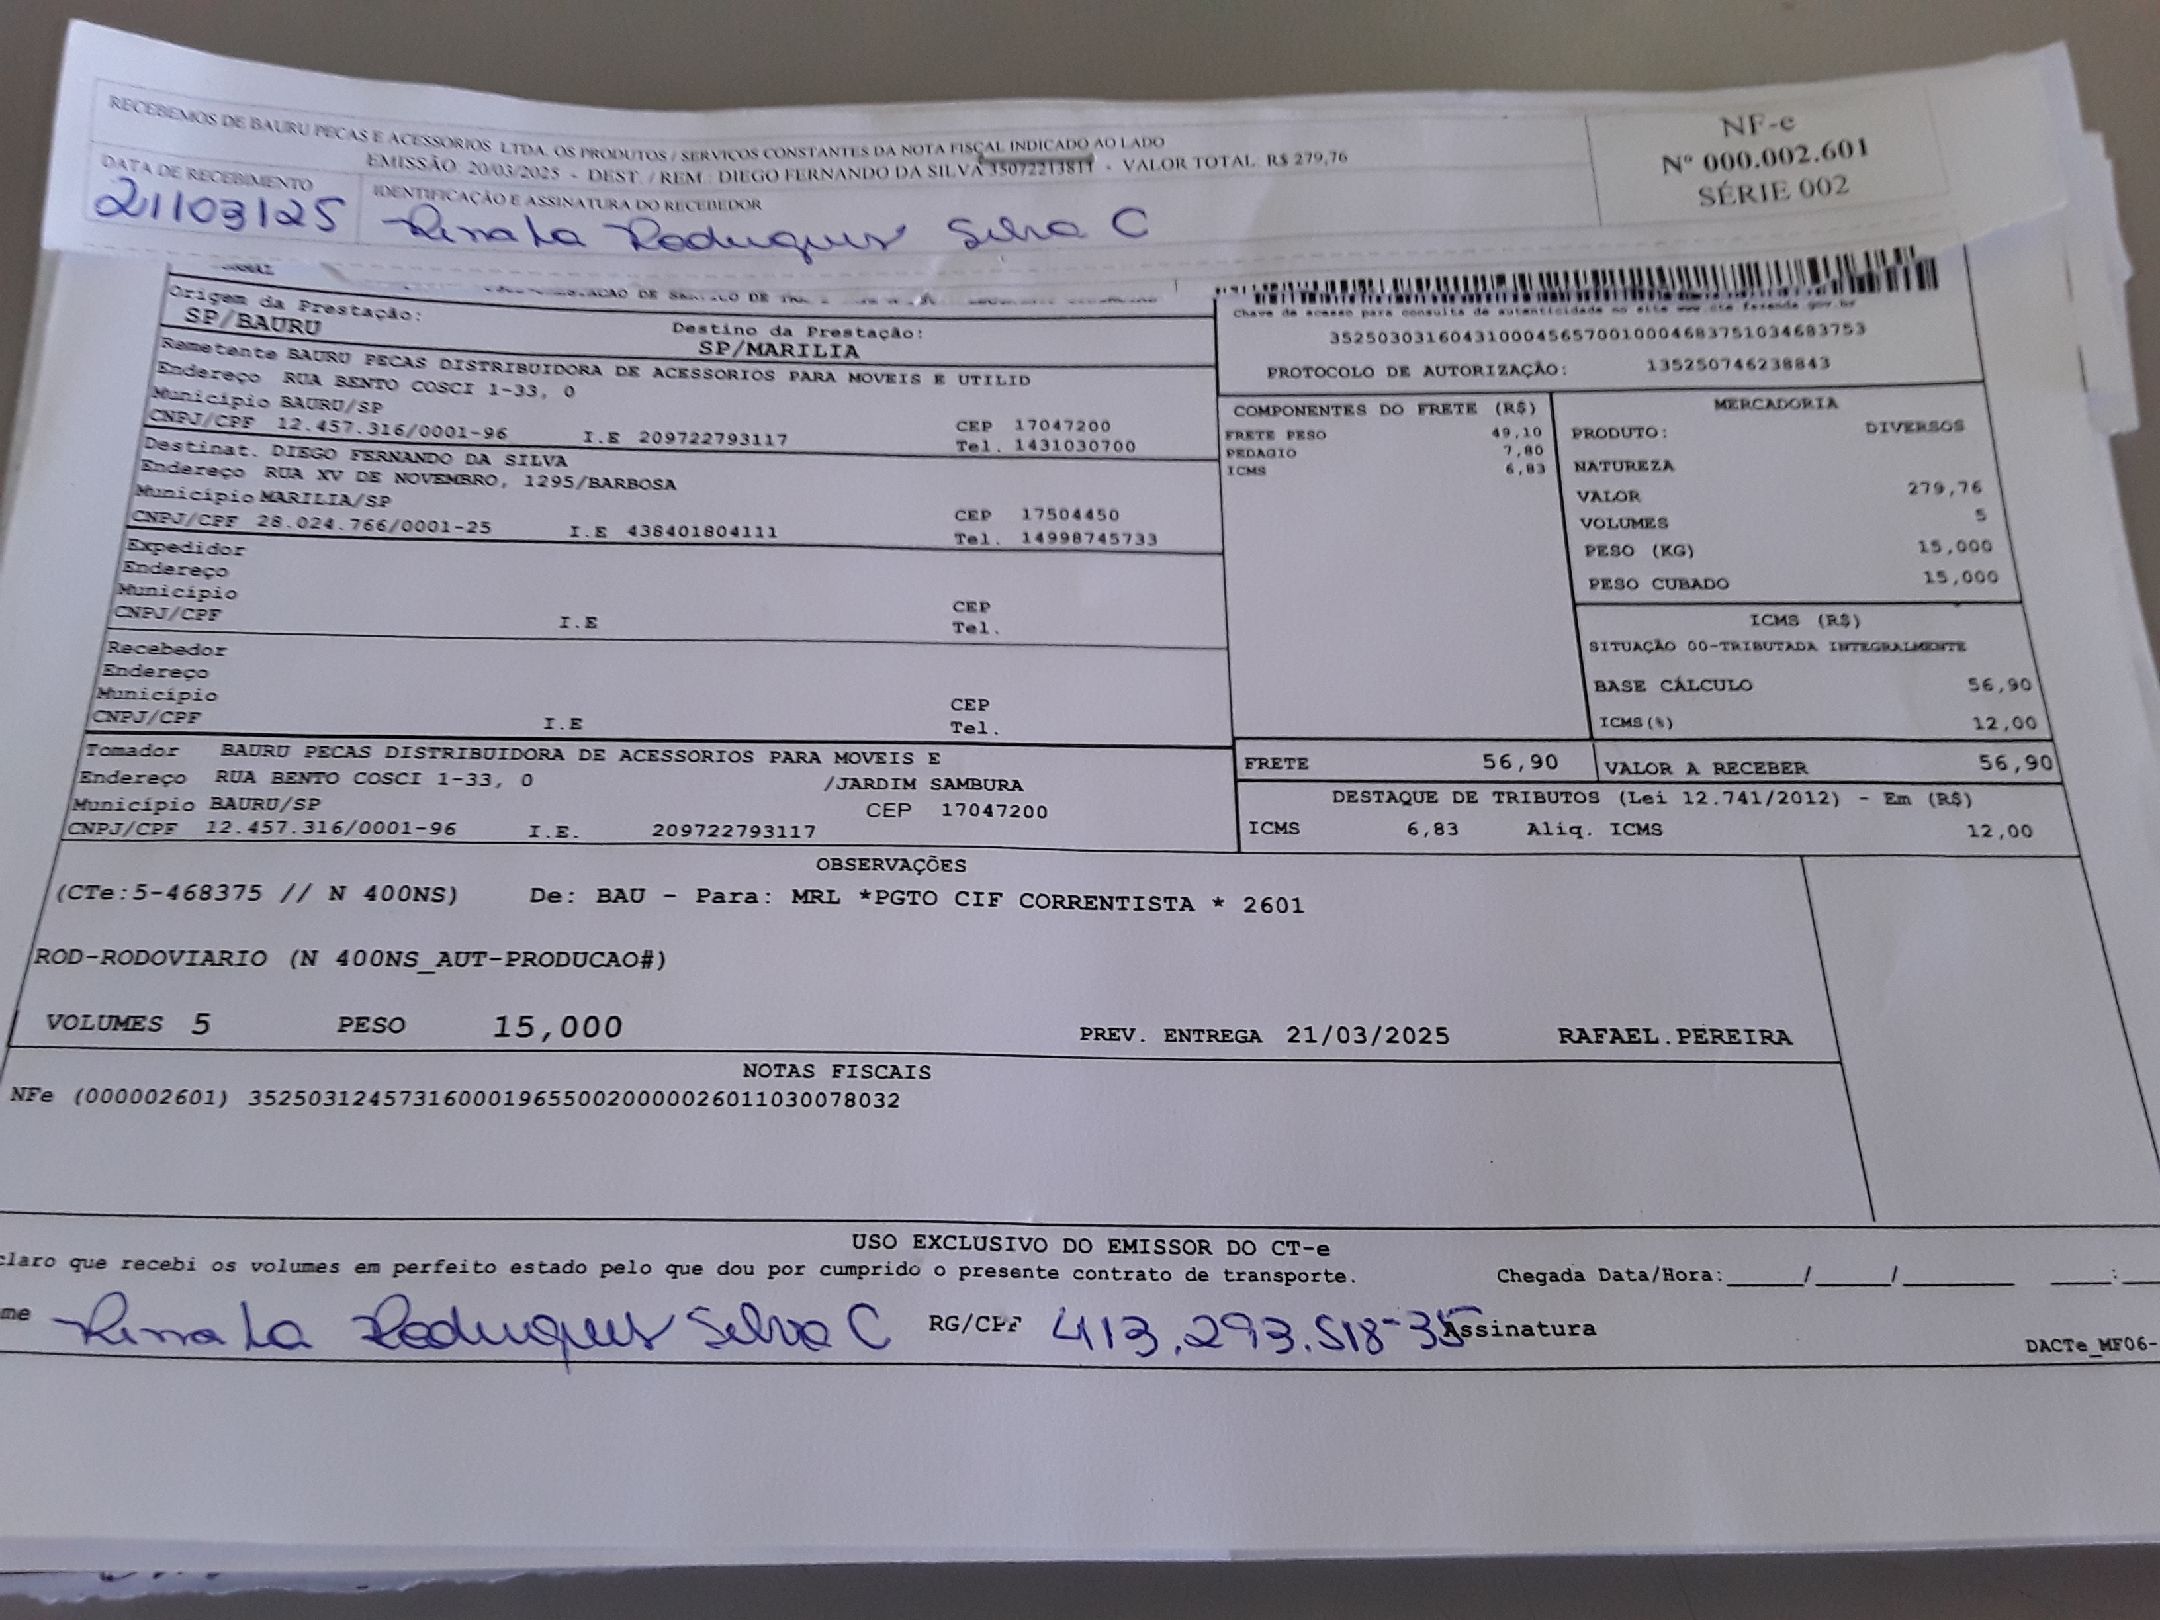 RECEBEMOS DE BAURU PECAS E ACESSORIOS LTDA. OS PRODUTOS / SERVICOS CONSTANTES DA NOTA FISCAL INDICADO AO LADO
EMISSÃO 20/03/2025 - DEST. / REM.: DIEGO FERNANDO DA SILVA 35072213811 - VALOR TOTAL R$ 279,76
NF-e
Nº 000.002.601
SÉRIE 002
DATA DE RECEBIMENTO
21/03/25
IDENTIFICAÇÃO E ASSINATURA DO RECEBEDOR
Renata Rodrigues Silva C
Origem da Prestação:
SP/BAURU
Destino da Prestação:
SP/MARILIA
Chave de acesso para consulta de autenticidade no site www.cte.fazenda.gov.br
35250303160431000456570010004683751034683753
PROTOCOLO DE AUTORIZAÇÃO: 135250746238843
Remetente BAURU PECAS DISTRIBUIDORA DE ACESSORIOS PARA MOVEIS E UTILID
Endereço RUA BENTO COSCI 1-33, 0
Município BAURU/SP CEP 17047200
CNPJ/CPF 12.457.316/0001-96 I.E 209722793117 Tel. 1431030700
Destinat. DIEGO FERNANDO DA SILVA
Endereço RUA XV DE NOVEMBRO, 1295/BARBOSA
Município MARILIA/SP CEP 17504450
CNPJ/CPF 28.024.766/0001-25 I.E 438401804111 Tel. 14998745733
Expedidor
Endereço
Município CEP
CNPJ/CPF I.E Tel.
Recebedor
Endereço
Município CEP
CNPJ/CPF I.E Tel.
Tomador BAURU PECAS DISTRIBUIDORA DE ACESSORIOS PARA MOVEIS E
Endereço RUA BENTO COSCI 1-33, 0 /JARDIM SAMBURA
Município BAURU/SP CEP 17047200
CNPJ/CPF 12.457.316/0001-96 I.E. 209722793117
COMPONENTES DO FRETE (R$)
FRETE PESO 49,10
PEDAGIO 7,80
ICMS 6,83
MERCADORIA
PRODUTO: DIVERSOS
NATUREZA
VALOR 279,76
VOLUMES 5
PESO (KG) 15,000
PESO CUBADO 15,000
ICMS (R$)
SITUAÇÃO 00-TRIBUTADA INTEGRALMENTE
BASE CÁLCULO 56,90
ICMS(%) 12,00
FRETE 56,90 VALOR A RECEBER 56,90
DESTAQUE DE TRIBUTOS (Lei 12.741/2012) - Em (R$)
ICMS 6,83 Aliq. ICMS 12,00
OBSERVAÇÕES
(CTe:5-468375 // N 400NS) De: BAU - Para: MRL *PGTO CIF CORRENTISTA * 2601
ROD-RODOVIARIO (N 400NS_AUT-PRODUCAO#)
VOLUMES 5 PESO 15,000 PREV. ENTREGA 21/03/2025 RAFAEL.PEREIRA
NOTAS FISCAIS
NFe (000002601) 35250312457316000196550020000026011030078032
USO EXCLUSIVO DO EMISSOR DO CT-e
claro que recebi os volumes em perfeito estado pelo que dou por cumprido o presente contrato de transporte. Chegada Data/Hora:____/____/______ ____:___
me Renata Rodrigues Silva C RG/CPF 413.293.518-35 Assinatura
DACTe_MF06-